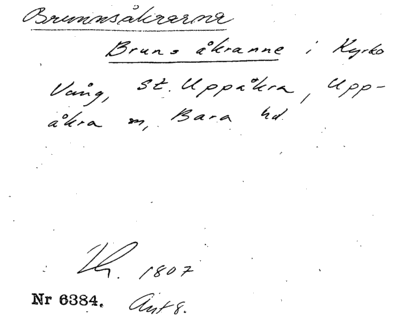 Brunnsåkrarna
Bruns åkranne i Kyrko
Vång, St. Uppåkra, Upp-
åkra sn, Bara hd.
1807
Nr 6384. Akt 8.